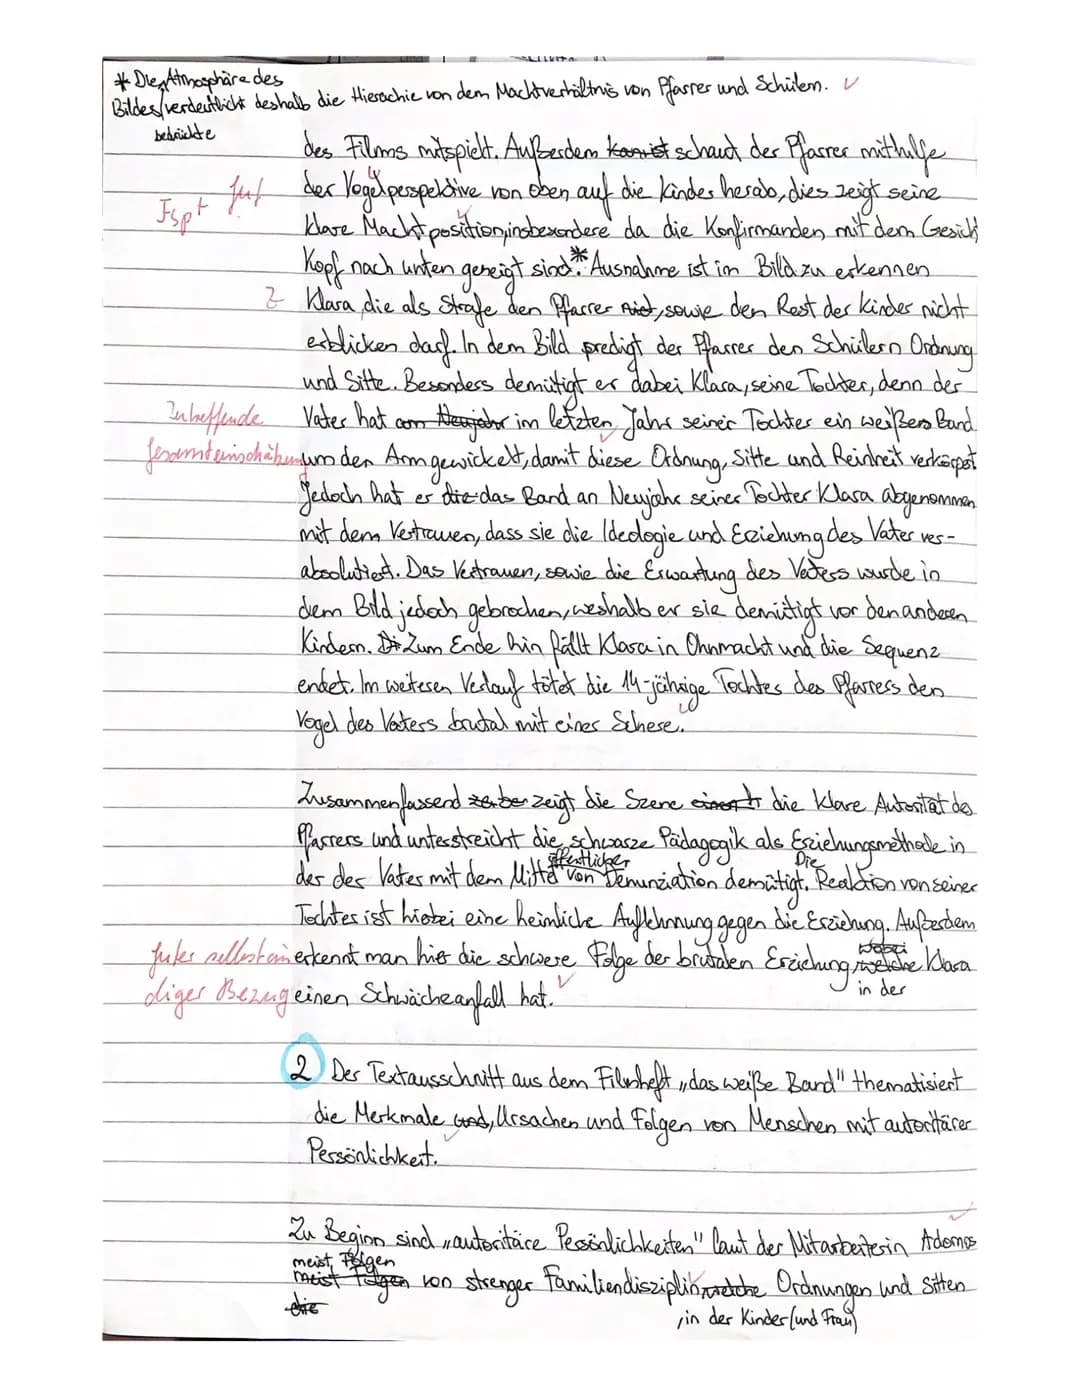 * Die Atmosphäre des
Bildes verdeutlicht deshalb die Hierachie von dem Machtverhältnis von Pfarrer und Schülern. ✓
bedrückte
des Films mitspielt. Außerdem schaut der Pfarrer mithilfe
gut der Vogelperspektive von oben auf die Kinder herab, dies zeigt seine
Fspt klare Machtposition, insbesondere da die Konfirmanden mit dem Gesicht
Kopf nach unten geneigt sind.* Ausnahme ist im Bild zu erkennen
Z Klara, die als Strafe den Pfarrer nicht, sowie den Rest der Kinder nicht
erblicken darf. In dem Bild predigt der Pfarrer den Schülern Ordnung
und Sitte. Besonders demütigt er dabei Klara, seine Tochter, denn der
Zutreffende Vater hat am Neujahr im letzten Jahr seiner Tochter ein weißers Band
Gesamteinschätzung um den Arm gewickelt, damit diese Ordnung, Sitte und Reinheit verkörpert
Jedoch hat er die das Band an Neujahr seiner Tochter Klara abgenommen
mit dem Vertrauen, dass sie die Ideologie und Erziehung des Vater ver-
absolutiert. Das Vertrauen, sowie die Erwartung des Vaters wurde in
dem Bild jedoch gebrochen, weshalb er sie demütigt vor den anderen
Kindern. Di Zum Ende hin fällt Klara in Ohnmacht und die Sequenz
endet. Im weiteren Verlauf tötet die 14-jährige Tochter des Pfarrers den
Vogel des Vaters brutal mit einer Schere.
Zusammenfassend zeigt die Szene die klare Autorität des
Pfarrers und unterstreicht die schwarze Pädagogik als Erziehungsmethode in
öffentlicher Die
der der Vater mit dem Mittel von Denunziation demütigt. Reaktion von seiner
Tochter ist hierbei eine heimliche Auflehnung gegen die Erziehung. Außerdem
wobei
guter selbstän erkennt man hier die schwere Folge der brutalen Erziehung, welche Klara
in der
diger Bezug einen Schwächeanfall hat. ✓
2 Der Textausschnitt aus dem Filmheft „das weiße Band" thematisiert
die Merkmale und, Ursachen und Folgen von Menschen mit autoritärer
Persönlichkeit.
Zu Beginn sind „autoritäre Persönlichkeiten" laut der Mitarbeiterin Adornos
meist Folgen
meist Folgen von strenger Familiendisziplin, welche Ordnungen und Sitten
die
, in der Kinder (und Frau)